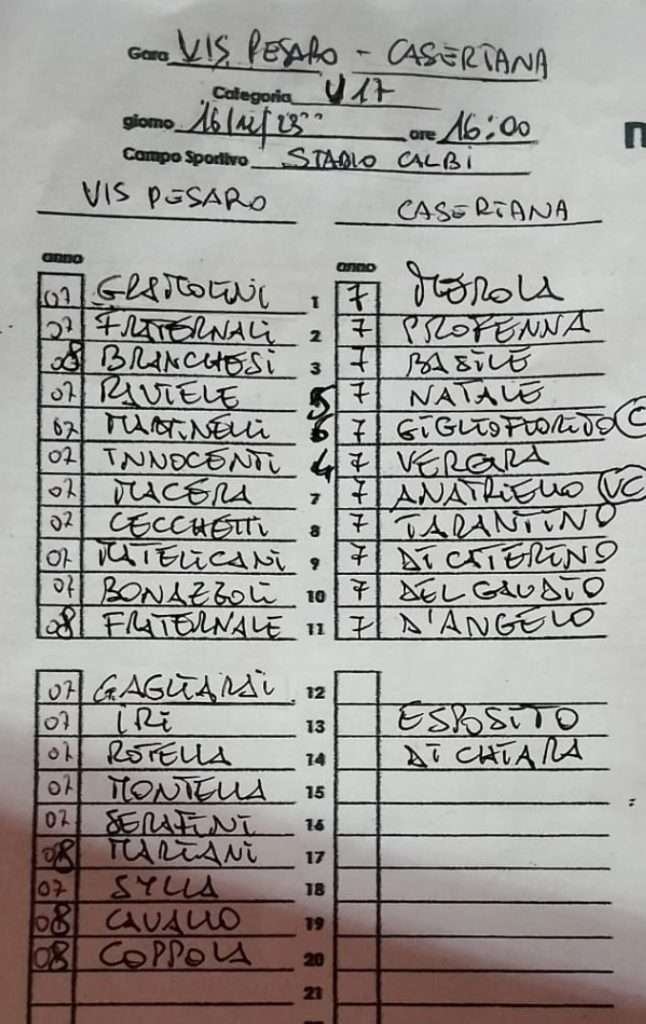 Gara VIS PESARO - CASERTANA
Categoria U17
giorno 16/12/23 ore 16:00
Campo Sportivo STADIO CALBI
VIS PESARO CASERTANA
anno anno
07 GRAMOLINI 1 7 MEROLA
07 FRATERNALI 2 7 PROFENNA
08 BRANCHESI 3 7 BASILE
07 RAVIELE 5 7 NATALE
07 MARTINELLI 6 7 GIGLIOFIORITO C
07 INNOCENTI 4 7 VERGARA
07 MACERA 7 7 ANATRIELLO VC
07 CECCHETTI 8 7 TARANTINO
07 MATELICANI 9 7 DI CATERINO
07 BONAZZOLI 10 7 DEL GAUDIO
08 FRATERNALE 11 7 D'ANGELO
07 GAGLIARDI 12
07 IRI 13 ESPOSITO
07 ROTELLA 14 DI CHIARA
07 MONTELLA 15
07 SERAFINI 16
08 MARIANI 17
07 SYLLA 18
08 CAVALLO 19
08 COPPOLA 20
21